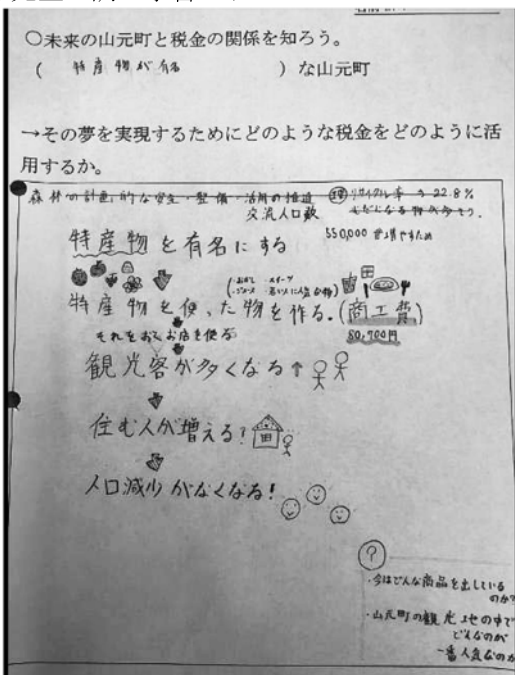 ○未来の山元町と税金の関係を知ろう。
( 特産物が有名 ) な山元町
→その夢を実現するためにどのような税金をどのように活
用するか。
森林の計画的な安全・整備・活用の推進 リサイクル率 22.8%
交流人口数
550,000 増やすため
特産物を有名にする
特産物を使った物を作る。(商工費)
80,700円
それをおくお店を作る
観光客が多くなる↑
住む人が増える?
人口減少がなくなる!
?
・今はどんな商品を出しているのか?
・山元町の観光地の中で
どんなのが
一番人気なのか